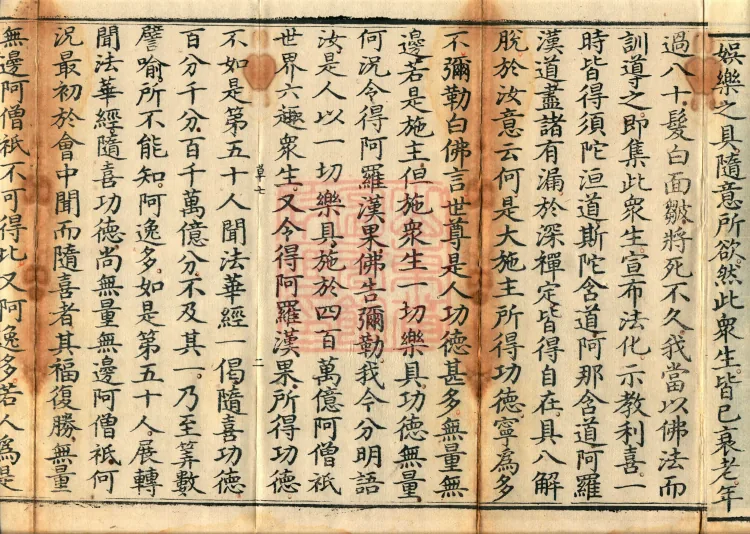 娛樂之具。隨意所欲。然此衆生。皆已衰老。年
過八十。髮白面皺。將死不久。我當以佛法而
訓導之。即集此衆生。宣布法化。示教利喜。一
時皆得須陀洹道。斯陀含道。阿那含道。阿羅
漢道。盡諸有漏。於深禪定。皆得自在。具八解
脫。於汝意云何。是大施主所得功德。寧爲多
不。彌勒白佛言。世尊。是人功德甚多。無量無
邊。若是施主。但施衆生一切樂具。功德無量。
何況令得阿羅漢果。佛告彌勒。我今分明語
汝。是人以一切樂具。施於四百萬億阿僧祇
世界六趣衆生。又令得阿羅漢果。所得功德。
草七 二
不如是第五十人。聞法華經一偈。隨喜功德。
百分千分。百千萬億分。不及其一。乃至筭數
譬喻所不能知。阿逸多。如是第五十人。展轉
聞法華經。隨喜功德。尚無量無邊阿僧祇。何
況最初於會中。聞而隨喜者。其福復勝。無量
無邊阿僧祇。不可得比。又阿逸多。若人爲是